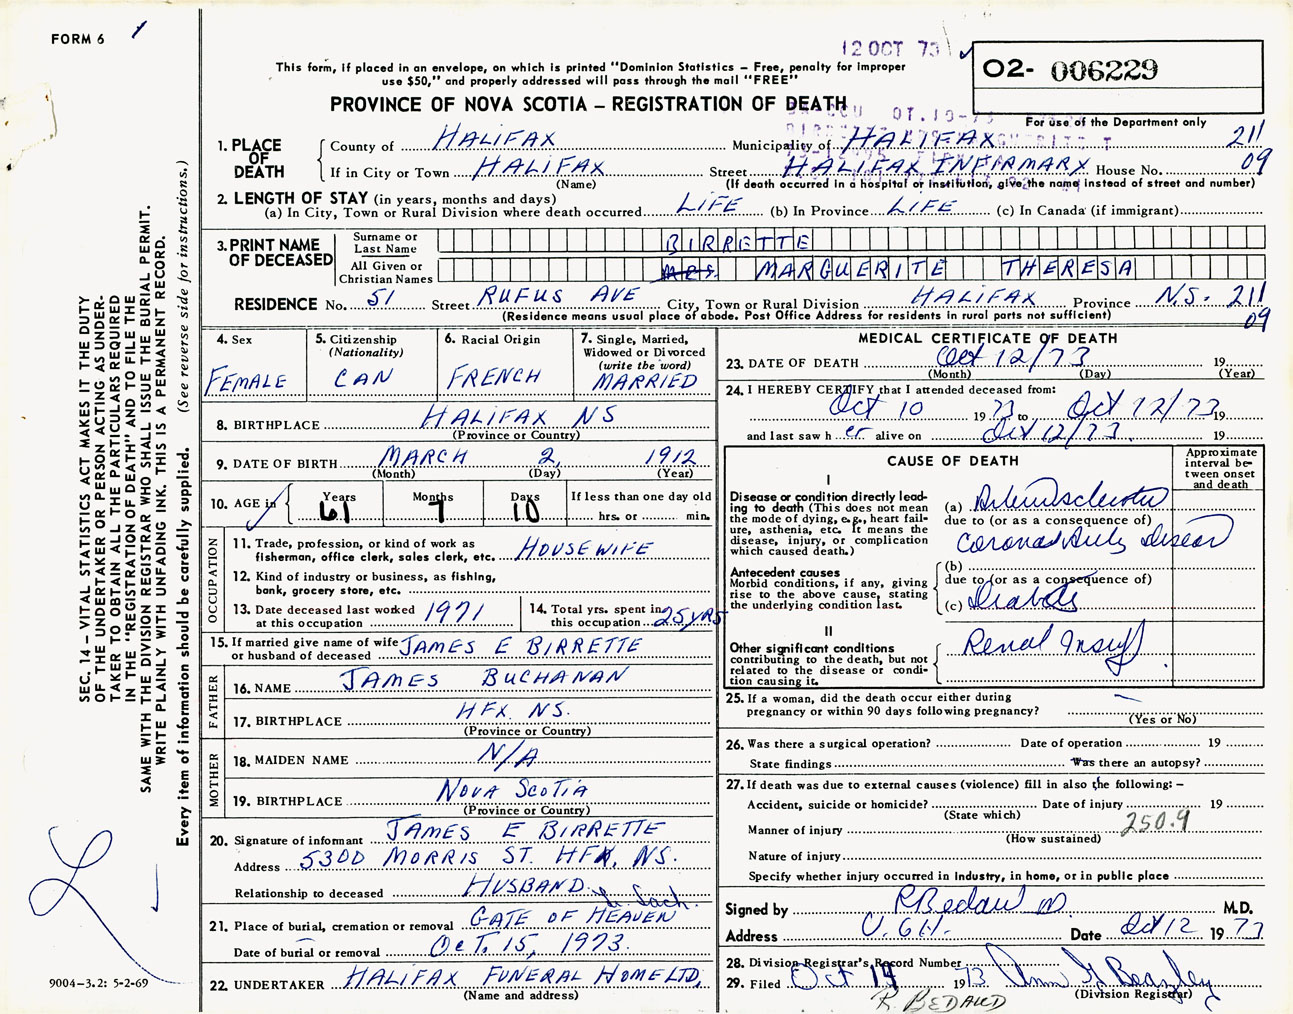 FORM 6
1
12 OCT 73
This form, if placed in an envelope, on which is printed "Dominion Statistics – Free, penalty for improper
use $50," and properly addressed will pass through the mail "FREE"
O2- 006229
PROVINCE OF NOVA SCOTIA – REGISTRATION OF DEATH
For use of the Department only
1. PLACE OF DEATH
County of HALIFAX Municipality of HALIFAX 211
If in City or Town HALIFAX Street HALIFAX INFIRMARY House No. 09
(Name) (If death occurred in a hospital or institution, give the name instead of street and number)
2. LENGTH OF STAY (in years, months and days)
(a) In City, Town or Rural Division where death occurred LIFE (b) In Province LIFE (c) In Canada (if immigrant)
3. PRINT NAME OF DECEASED
Surname or Last Name BIRRETTE
All Given or Christian Names MRS. MARGUERITE THERESA
RESIDENCE No. 51 Street RUFUS AVE City, Town or Rural Division HALIFAX Province N.S. 211
(Residence means usual place of abode. Post Office Address for residents in rural parts not sufficient) 09
4. Sex
FEMALE
5. Citizenship
(Nationality)
CAN
6. Racial Origin
FRENCH
7. Single, Married,
Widowed or Divorced
(write the word)
MARRIED
8. BIRTHPLACE HALIFAX NS
(Province or Country)
9. DATE OF BIRTH MARCH 2, 1912
(Month) (Day) (Year)
10. AGE in Years 61 Months 7 Days 10 If less than one day old
hrs. or min.
OCCUPATION
11. Trade, profession, or kind of work as
fisherman, office clerk, sales clerk, etc. HOUSEWIFE
12. Kind of industry or business, as fishing,
bank, grocery store, etc.
13. Date deceased last worked
at this occupation 1971
14. Total yrs. spent in
this occupation 25 YRS
15. If married give name of wife
or husband of deceased JAMES E BIRRETTE
FATHER
16. NAME JAMES BUCHANAN
17. BIRTHPLACE HFX. NS.
(Province or Country)
MOTHER
18. MAIDEN NAME N/A
19. BIRTHPLACE NOVA SCOTIA
(Province or Country)
20. Signature of informant JAMES E BIRRETTE
Address 5300 MORRIS ST. HFX, NS.
Relationship to deceased HUSBAND
21. Place of burial, cremation or removal GATE OF HEAVEN
Date of burial or removal OCT. 15, 1973.
22. UNDERTAKER HALIFAX FUNERAL HOME LTD.
(Name and address)
MEDICAL CERTIFICATE OF DEATH
23. DATE OF DEATH Oct 12/73 19
(Month) (Day) (Year)
24. I HEREBY CERTIFY that I attended deceased from:
Oct 10 1973 to Oct 12/73 19
and last saw her alive on Oct 12/73. 19
CAUSE OF DEATH
Approximate
interval be-
tween onset
and death
I
Disease or condition directly lead-
ing to death (This does not mean
the mode of dying, e.g., heart fail-
ure, asthenia, etc. It means the
disease, injury, or complication
which caused death.)
(a)
due to (or as a consequence of)
Antecedent causes
Morbid conditions, if any, giving
rise to the above cause, stating
the underlying condition last.
(b)
due to (or as a consequence of)
(c) Diabetes
II
Other significant conditions
contributing to the death, but not
related to the disease or condi-
tion causing it.
Renal Insuff
25. If a woman, did the death occur either during
pregnancy or within 90 days following pregnancy? —
(Yes or No)
26. Was there a surgical operation? Date of operation 19
State findings Was there an autopsy?
27. If death was due to external causes (violence) fill in also the following: –
Accident, suicide or homicide? Date of injury 19
(State which)
Manner of injury 250.9
(How sustained)
Nature of injury
Specify whether injury occurred in industry, in home, or in public place
Signed by R Bedaud M.D.
Address V.G.H. Date Oct 12 1973
28. Division Registrar's Record Number
29. Filed Oct 19 1973
(Division Registrar)
R. BEDAUD
SEC. 14 – VITAL STATISTICS ACT MAKES IT THE DUTY
OF THE UNDERTAKER OR PERSON ACTING AS UNDER-
TAKER TO OBTAIN ALL THE PARTICULARS REQUIRED
IN THE "REGISTRATION OF DEATH" AND TO FILE THE
SAME WITH THE DIVISION REGISTRAR WHO SHALL ISSUE THE BURIAL PERMIT.
WRITE PLAINLY WITH UNFADING INK. THIS IS A PERMANENT RECORD.
Every item of information should be carefully supplied. (See reverse side for instructions.)
9004-3.2: 5-2-69